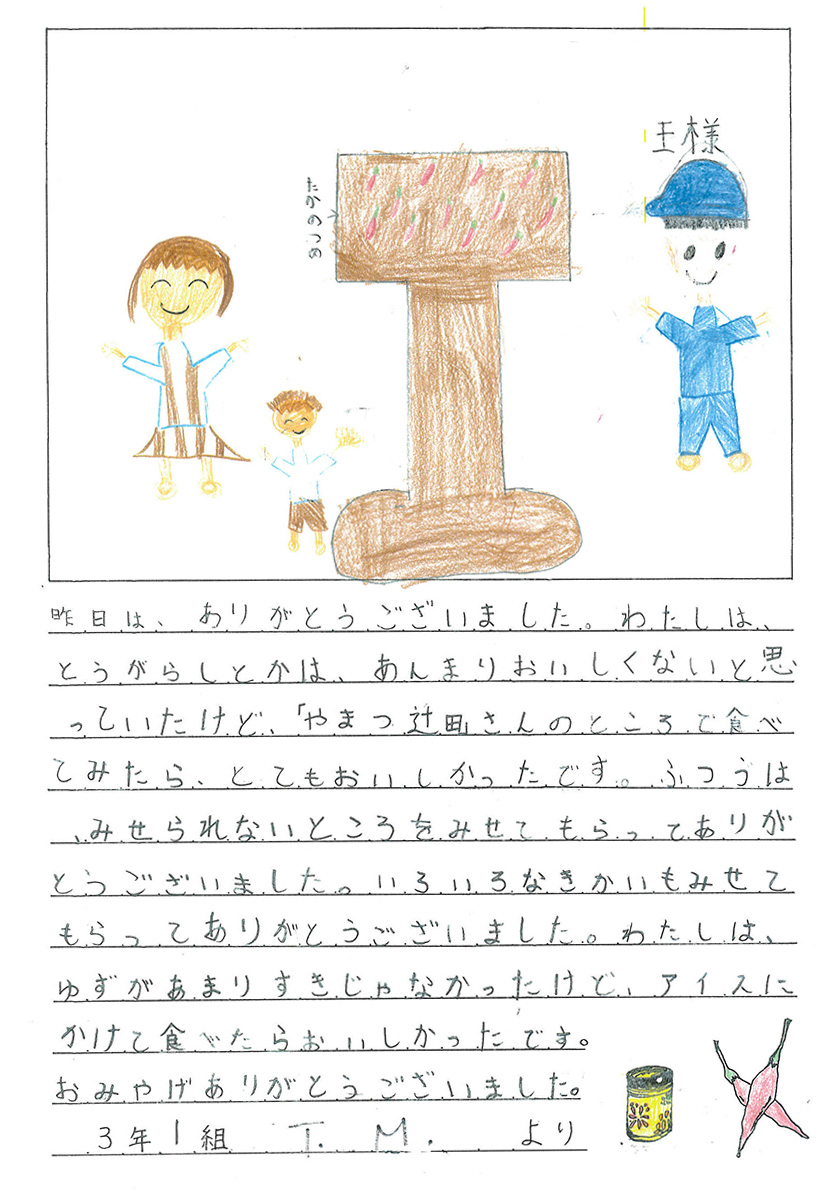 王様
昨日は、ありがとうございました。わたしは、
とうがらしとかは、あんまりおいしくないと思
っていたけど、「やまつ辻田さんのところで食べ
てみたら、とてもおいしかったです。ふつうは
、みせられないところをみせてもらってありが
とうございました。いろいろなきかいもみせて
もらってありがとうございました。わたしは、
ゆずがあまりすきじゃなかったけど、アイスに
かけて食べたらおいしかったです。
おみやげありがとうございました。
3年1組 T. M. より